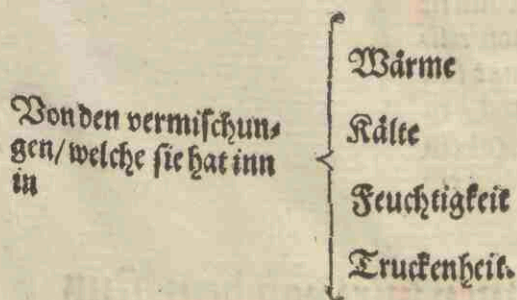 Von den vermischun⸗
gen/ welche sie hat inn
in
Wärme
Kälte
Feuchtigkeit
Truckenheit.